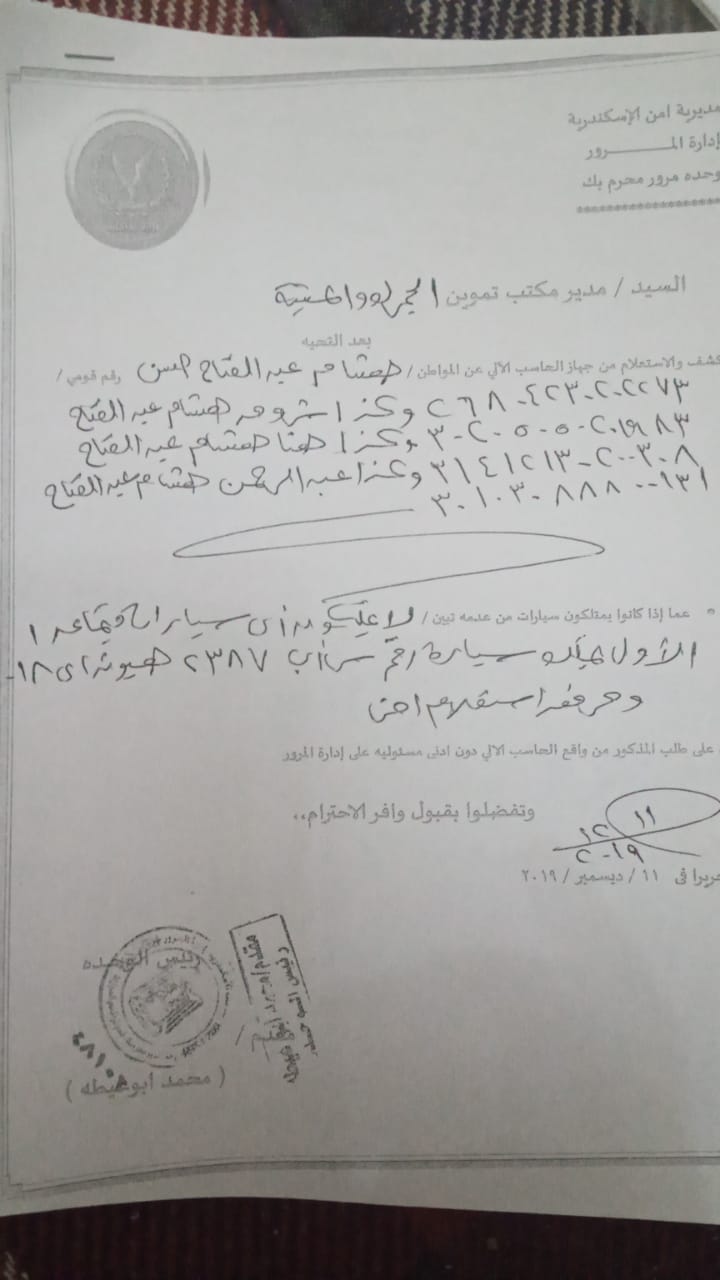 مديرية امن الإسكندرية
إدارة المـــــــرور
وحده مرور محرم بك
********************
السيد / مدير مكتب تموين الجمرك واللبنية
بعد التحيه
كشف والاستعلام من جهاز الحاسب الآلي عن المواطن / هشام عبد الفتاح حسن رقم قومي /
٢٦٨٠٤٢٣٠٢٠٢٢٧٣ وكذا هشام عبد الفتاح
٣٠٢٠٥٠٥٠٢٠١٩٨٣ وكذا هنا هشام عبد الفتاح
٣١٤١٢١٣٠٢٠٠٣٠٨ وكذا عبد الرحمن هشام عبد الفتاح
٣٠١٠٣٠٨٨٨٠٠١٣١
عما إذا كانوا يمتلكون سيارات من عدمه تبين / لا يمتلكوا أى سيارات ما عدا
الأول يمتلك سيارة رقم ٢٣٨٧ هيونداى ٢٠١٨
على طلب المذكور من واقع الحاسب الالي دون ادنى مسئوليه على إدارة المرور
وتفضلوا بقبول وافر الاحترام،،
١١
١٢
٢٠١٩
تحريرا فى ١١ / ديسمبر / ٢٠١٩
رئيس الوحده
( محمد ابوغيطه )